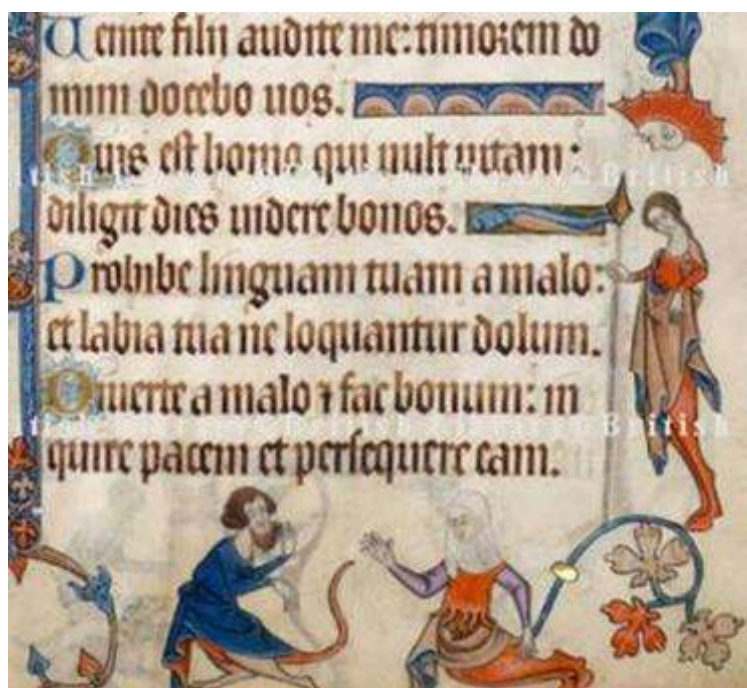 Uenite filij audite me: timorem do
mini docebo uos.
Quis est homo qui uult uitam:
British
diligit dies uidere bonos.
Prohibe linguam tuam a malo:
et labia tua ne loquantur dolum.
Diuerte a malo ⁊ fac bonum: in
British
quire pacem et persequere eam.